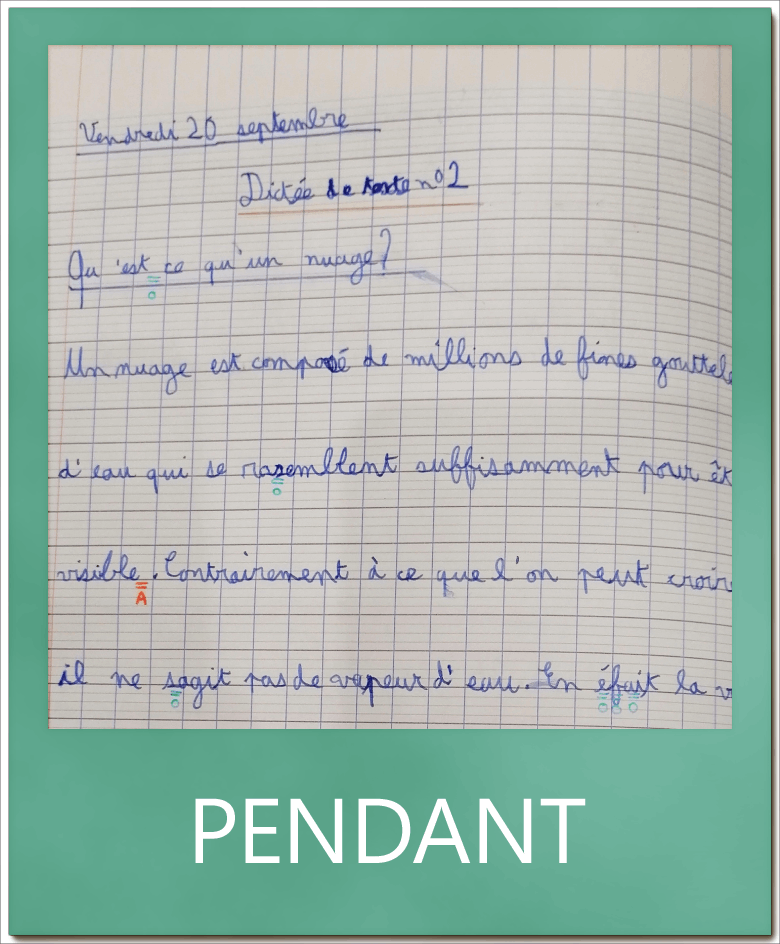 Vendredi 20 septembre
Dictée de texte n°2
Qu'est ce qu'un nuage?
Un nuage est composé de millions de fines gouttel
d'eau qui se rasemblent suffisamment pour êt
visible. Contrairement à ce que l'on peut croir
A
il ne sagit pas de vapeur d'eau. En éfait la v
PENDANT